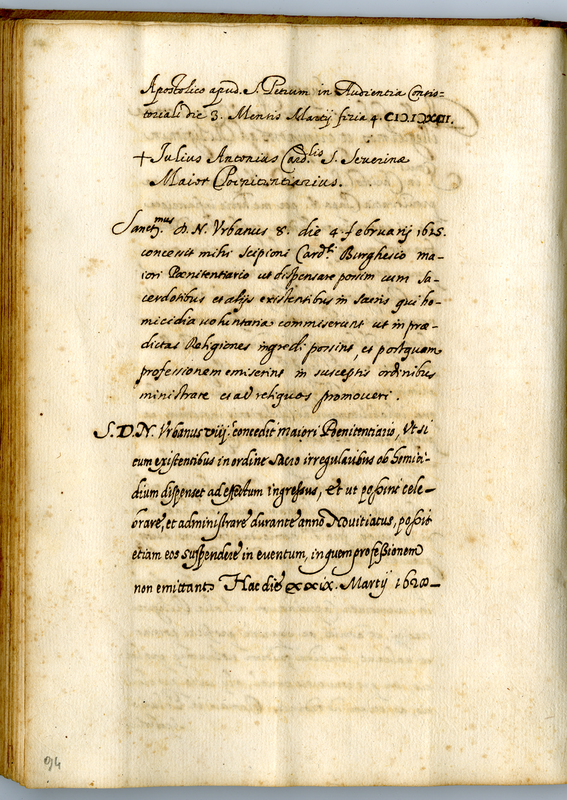 Apostolico apud. S. Petrum in Audientia Consis-
toriali die 3. Mensis Martij feria 4.
+ Iulius Antonius Card.lis S. Severinæ
Maior Pœnitentiarius.
Sanct.mus D. N. Vrbanus 8. die 4. februarij 1625.
concessit mihi Scipioni Card.li Burghesio ma-
iori Pœnitentiario ut dispensare possim cum sa-
cerdotibus et alijs existentibus in sacris qui ho-
micidia uoluntaria commiserunt ut in præ-
dictas Religiones ingredi possint, et postquam
professionem emiserint in susceptis ordinibus
ministrare et ad reliquos promoueri.
S. D. N. Vrbanus viij. concedit maiori Poenitentiario, Vt si
cum existentibus in ordine sacro irregularibus ob homici-
dium dispenset ad effectum ingressus, Et ut possint cele-
brare, et administrare durante anno Novitiatus, possit
etiam eos suspendere in euentum, in quem professionem
non emittant. Hac die xxix. Martij
94